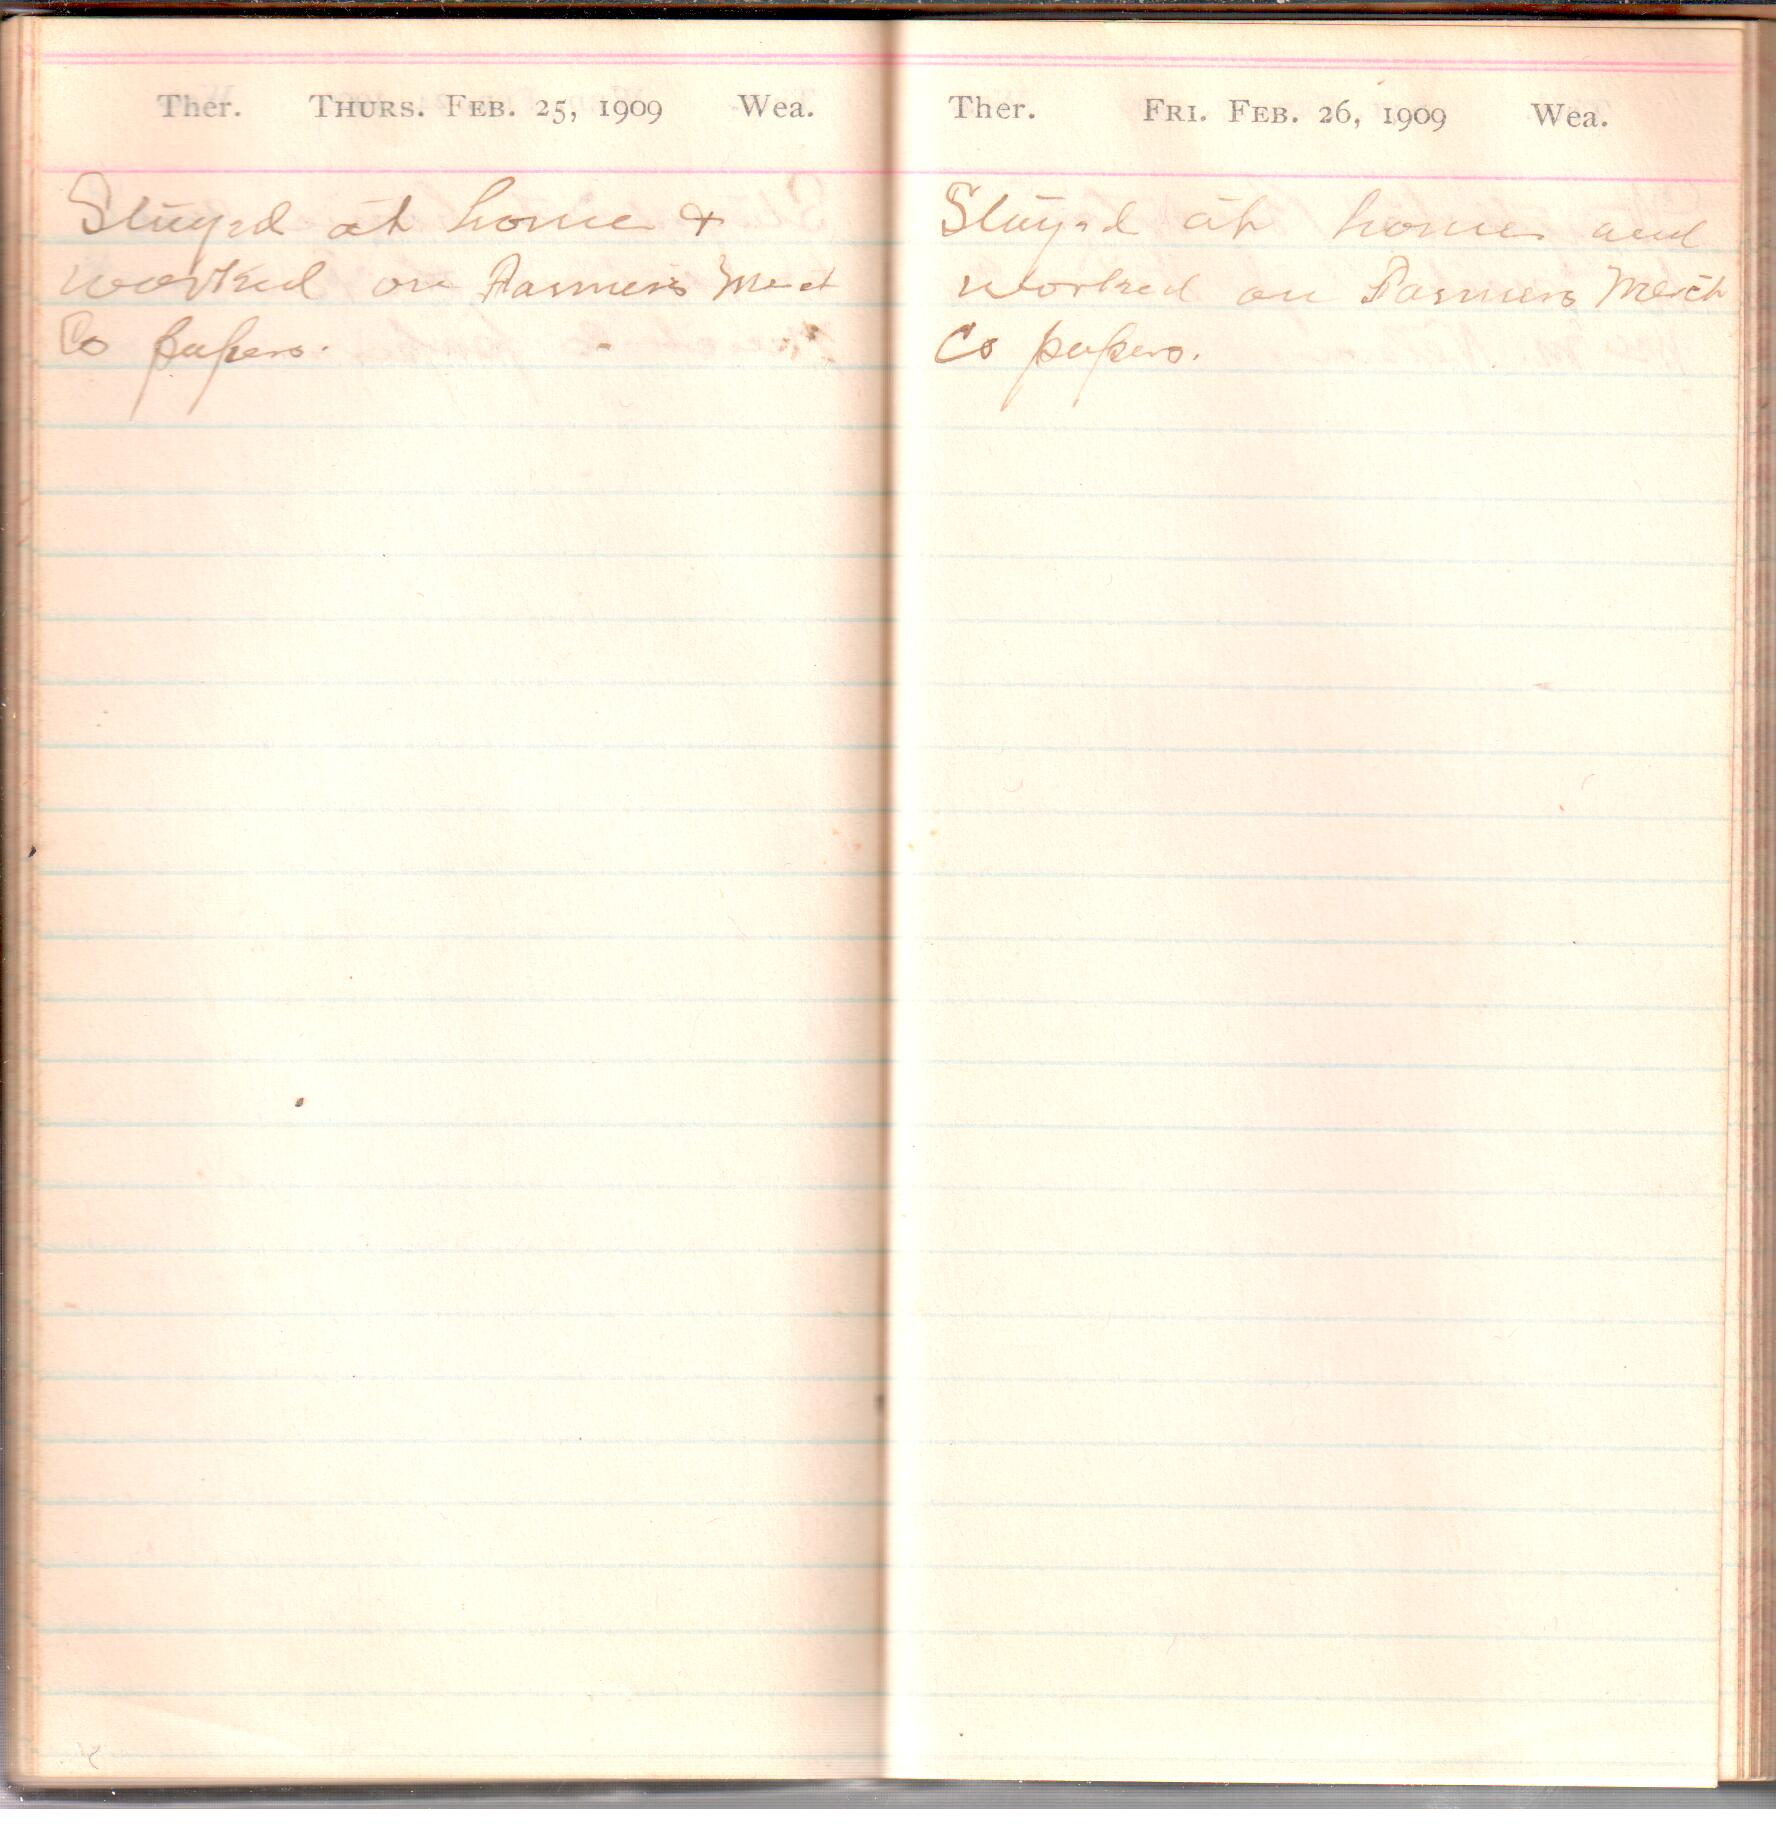 Ther. THURS. FEB. 25, 1909 Wea.
Stayed at home &
worked on Farmers Merct
Co papers.
Ther. FRI. FEB. 26, 1909 Wea.
Stayed at home and
worked on Farmers Merct
Co papers.